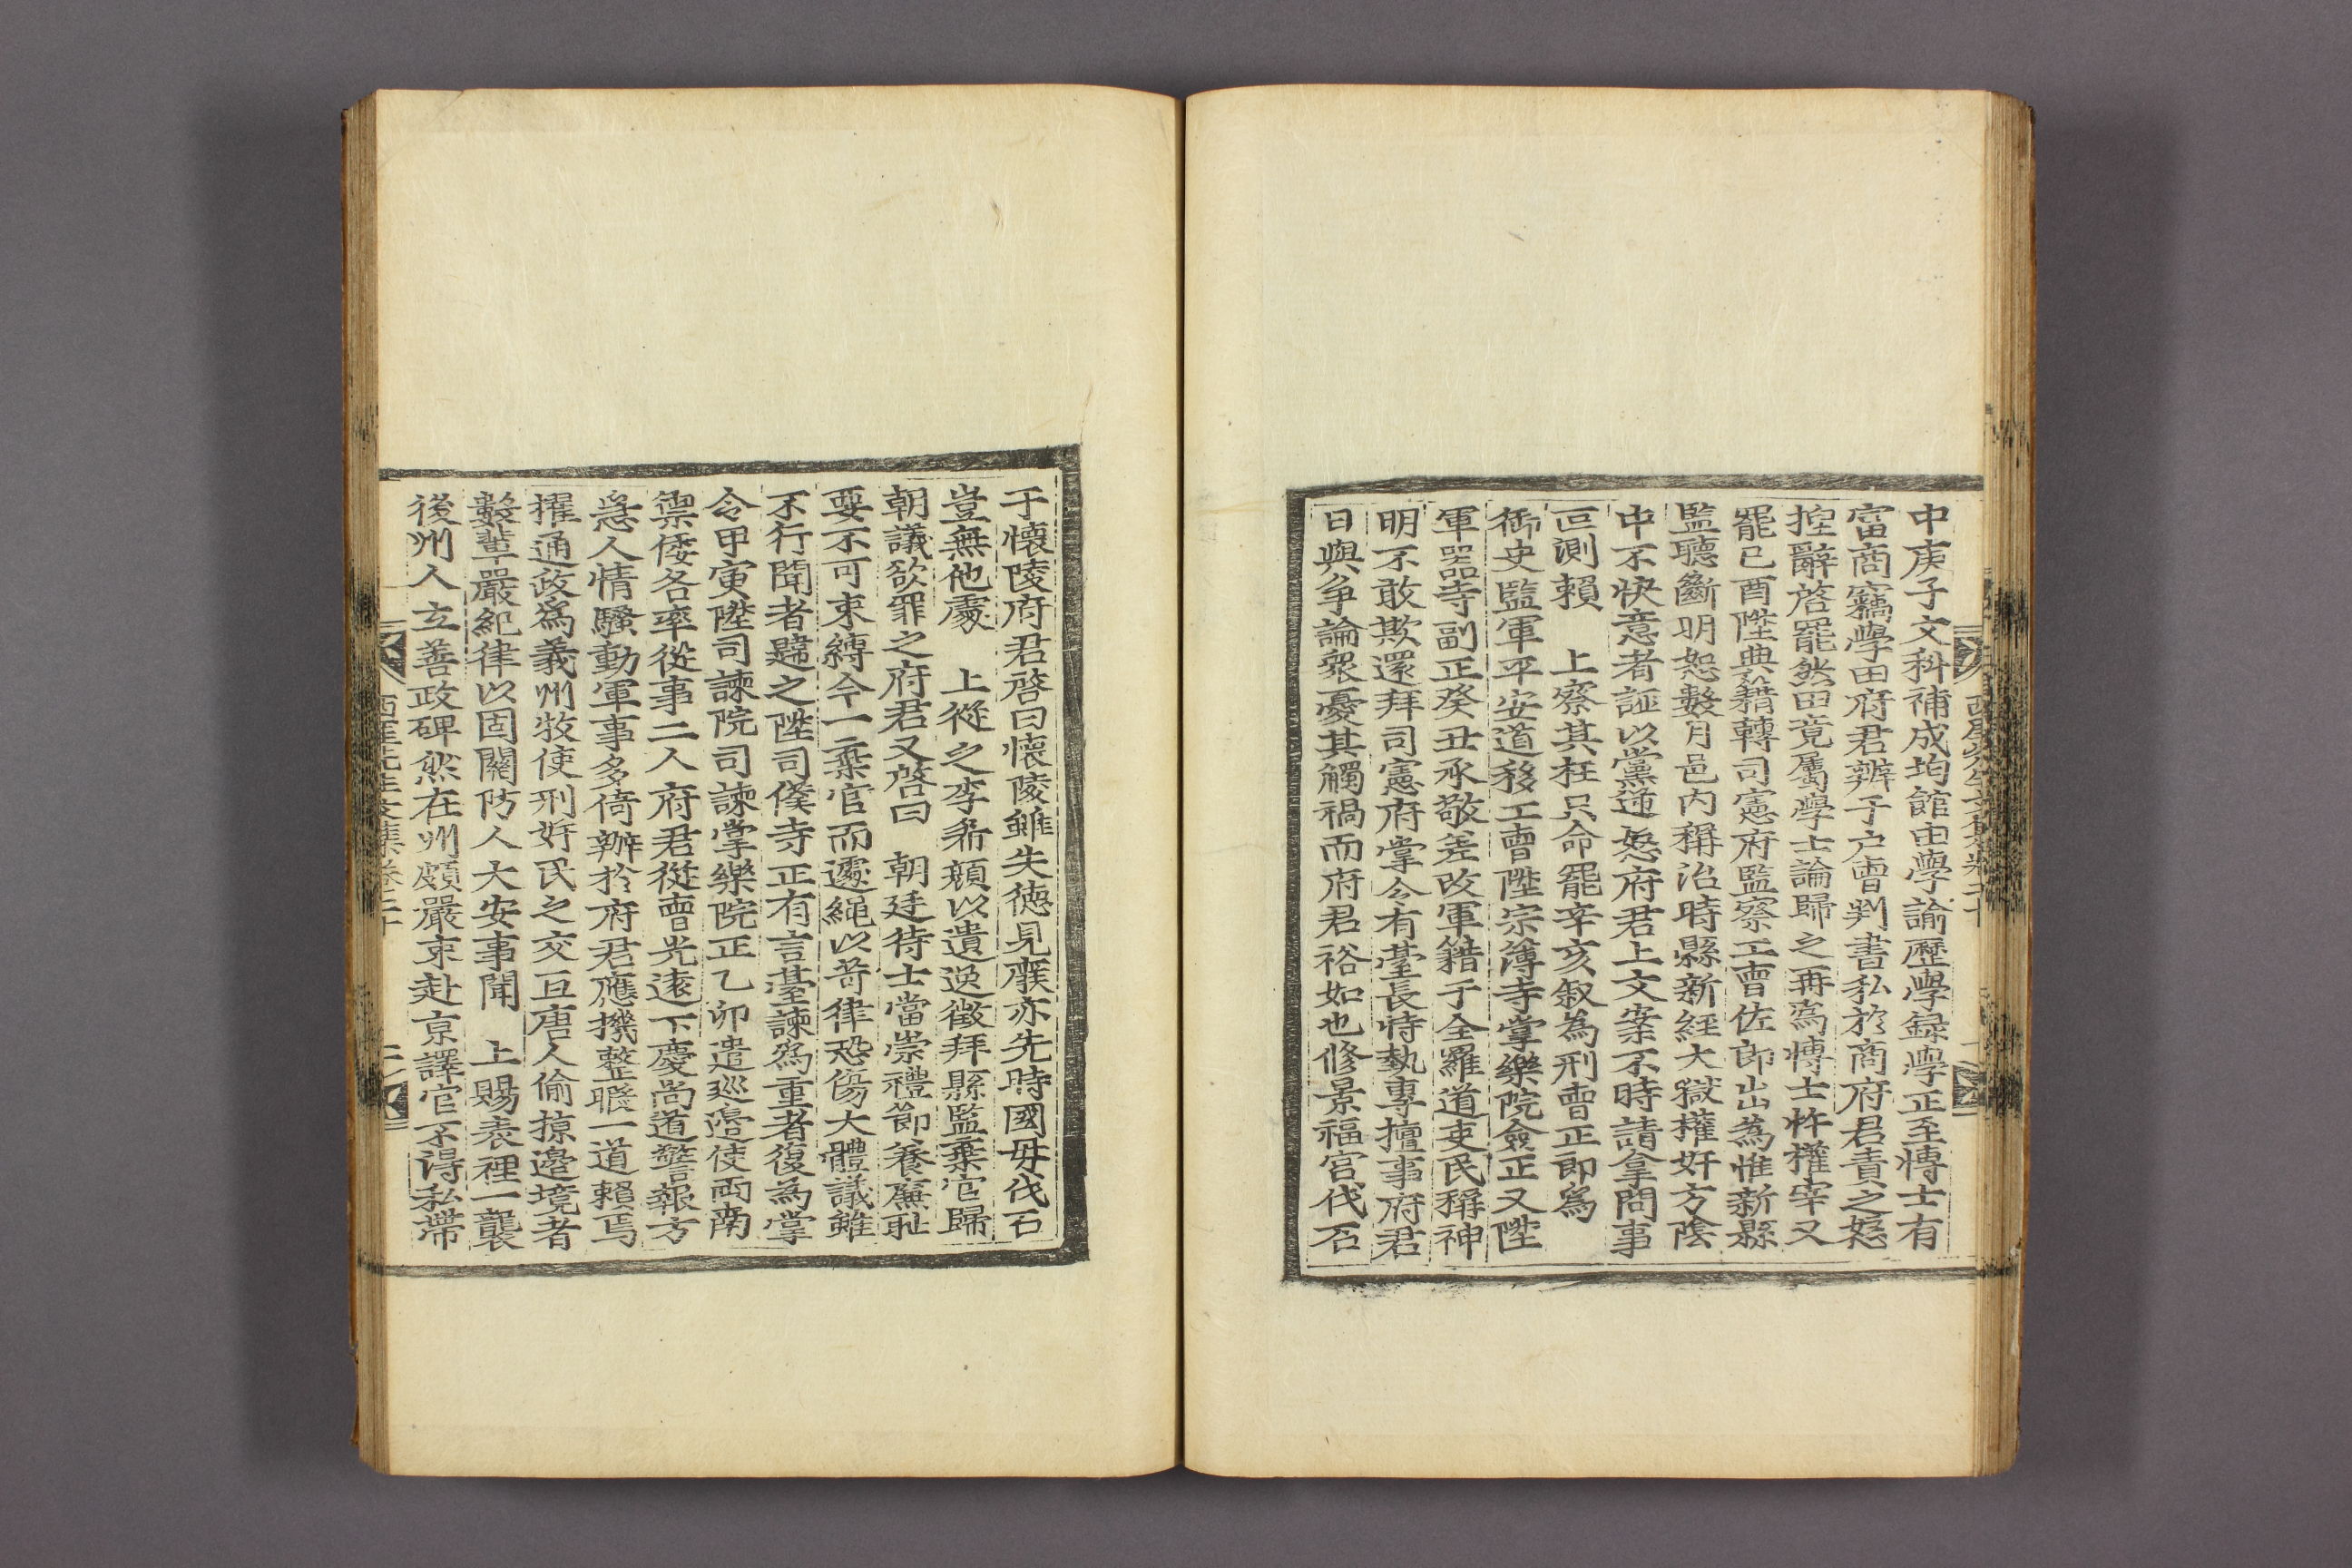 中庚子文科補成均館由學諭歷學録學正至博士有
富商竊學田府君辨于户曹判書私於商府君責之怒
揑辭啓罷然田竟屬學士論歸之再爲博士忤權宰又
罷已酉陞典籍轉司憲府監察工曹佐郎出為惟新縣
監聽斷明恕數月邑内稱治時縣新經大獄權奸方陰
中不快意者誣以黨逆怒府君上文案不時請拿問事
叵測賴　上察其枉只命罷辛亥叙為刑曹正郎爲
御史監軍平安道移工曹陞宗簿寺掌樂院僉正又陞
軍器寺副正癸丑承敬差改軍籍于全羅道吏民稱神
明不敢欺還拜司憲府掌令有臺長恃勢專擅事府君
日與爭論衆憂其觸禍而府君裕如也修景福宫伐石
西厓先生文集卷二十
于懷陵府君啓曰懷陵雖失德見廢亦先時國母伐石
豈無他處　上從之李希顔以遺逸徵拜縣監棄官歸
朝議欲罪之府君又啓曰　朝廷待士當崇禮節養廉恥
要不可束縛今一棄官而遽繩以苛律恐傷大體議雖
不行聞者韙之陞司僕寺正有言臺諫爲重者復為掌
令甲寅陞司諫院司諫掌樂院正乙卯遣巡邊使両南
禦倭各率從事二人府君從曹光遠下慶尚道警報方
急人情騷動軍事多倚辦於府君應機整暇一道賴焉
擢通政爲義州牧使刑奸民之交亘唐人偷掠邊境者
數輩嚴紀律以固關防人大安事聞　上賜表裡一襲
後州人立善政碑然在州頗嚴束赴京譯官不得私帶
西厓先生文集卷二十
二